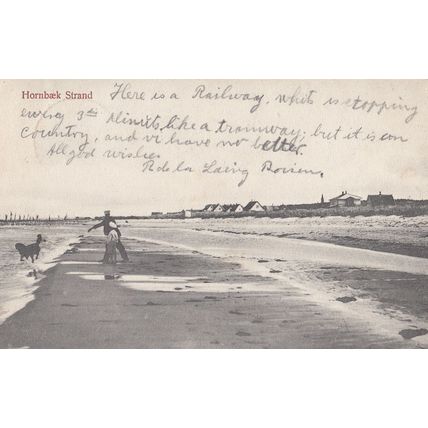 Hornbæk Strand
Here is a Railway, whits is stopping
ewery 3die Minits, like a tramway; but it is on
Country, and vi have no better.
All god wishes
R de la Laing Boisen,